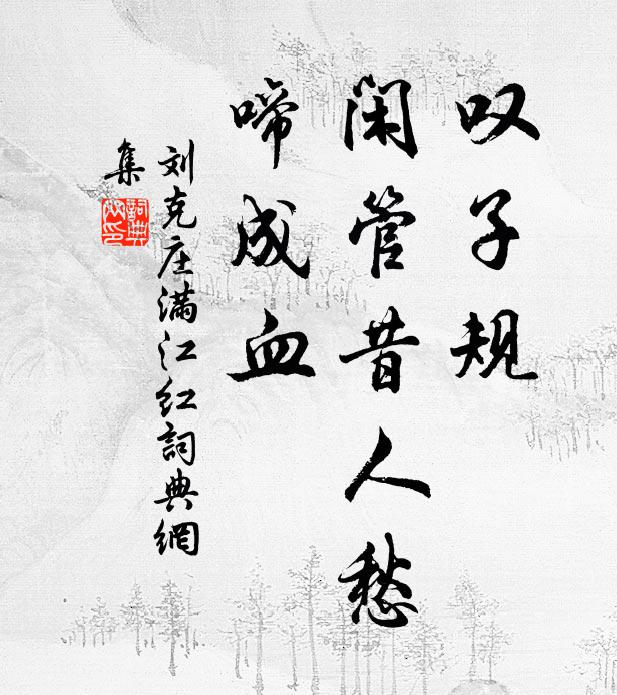 叹子规
闲管昔人愁
啼成血
刘克庄满江红詞典網
集
詞典網印